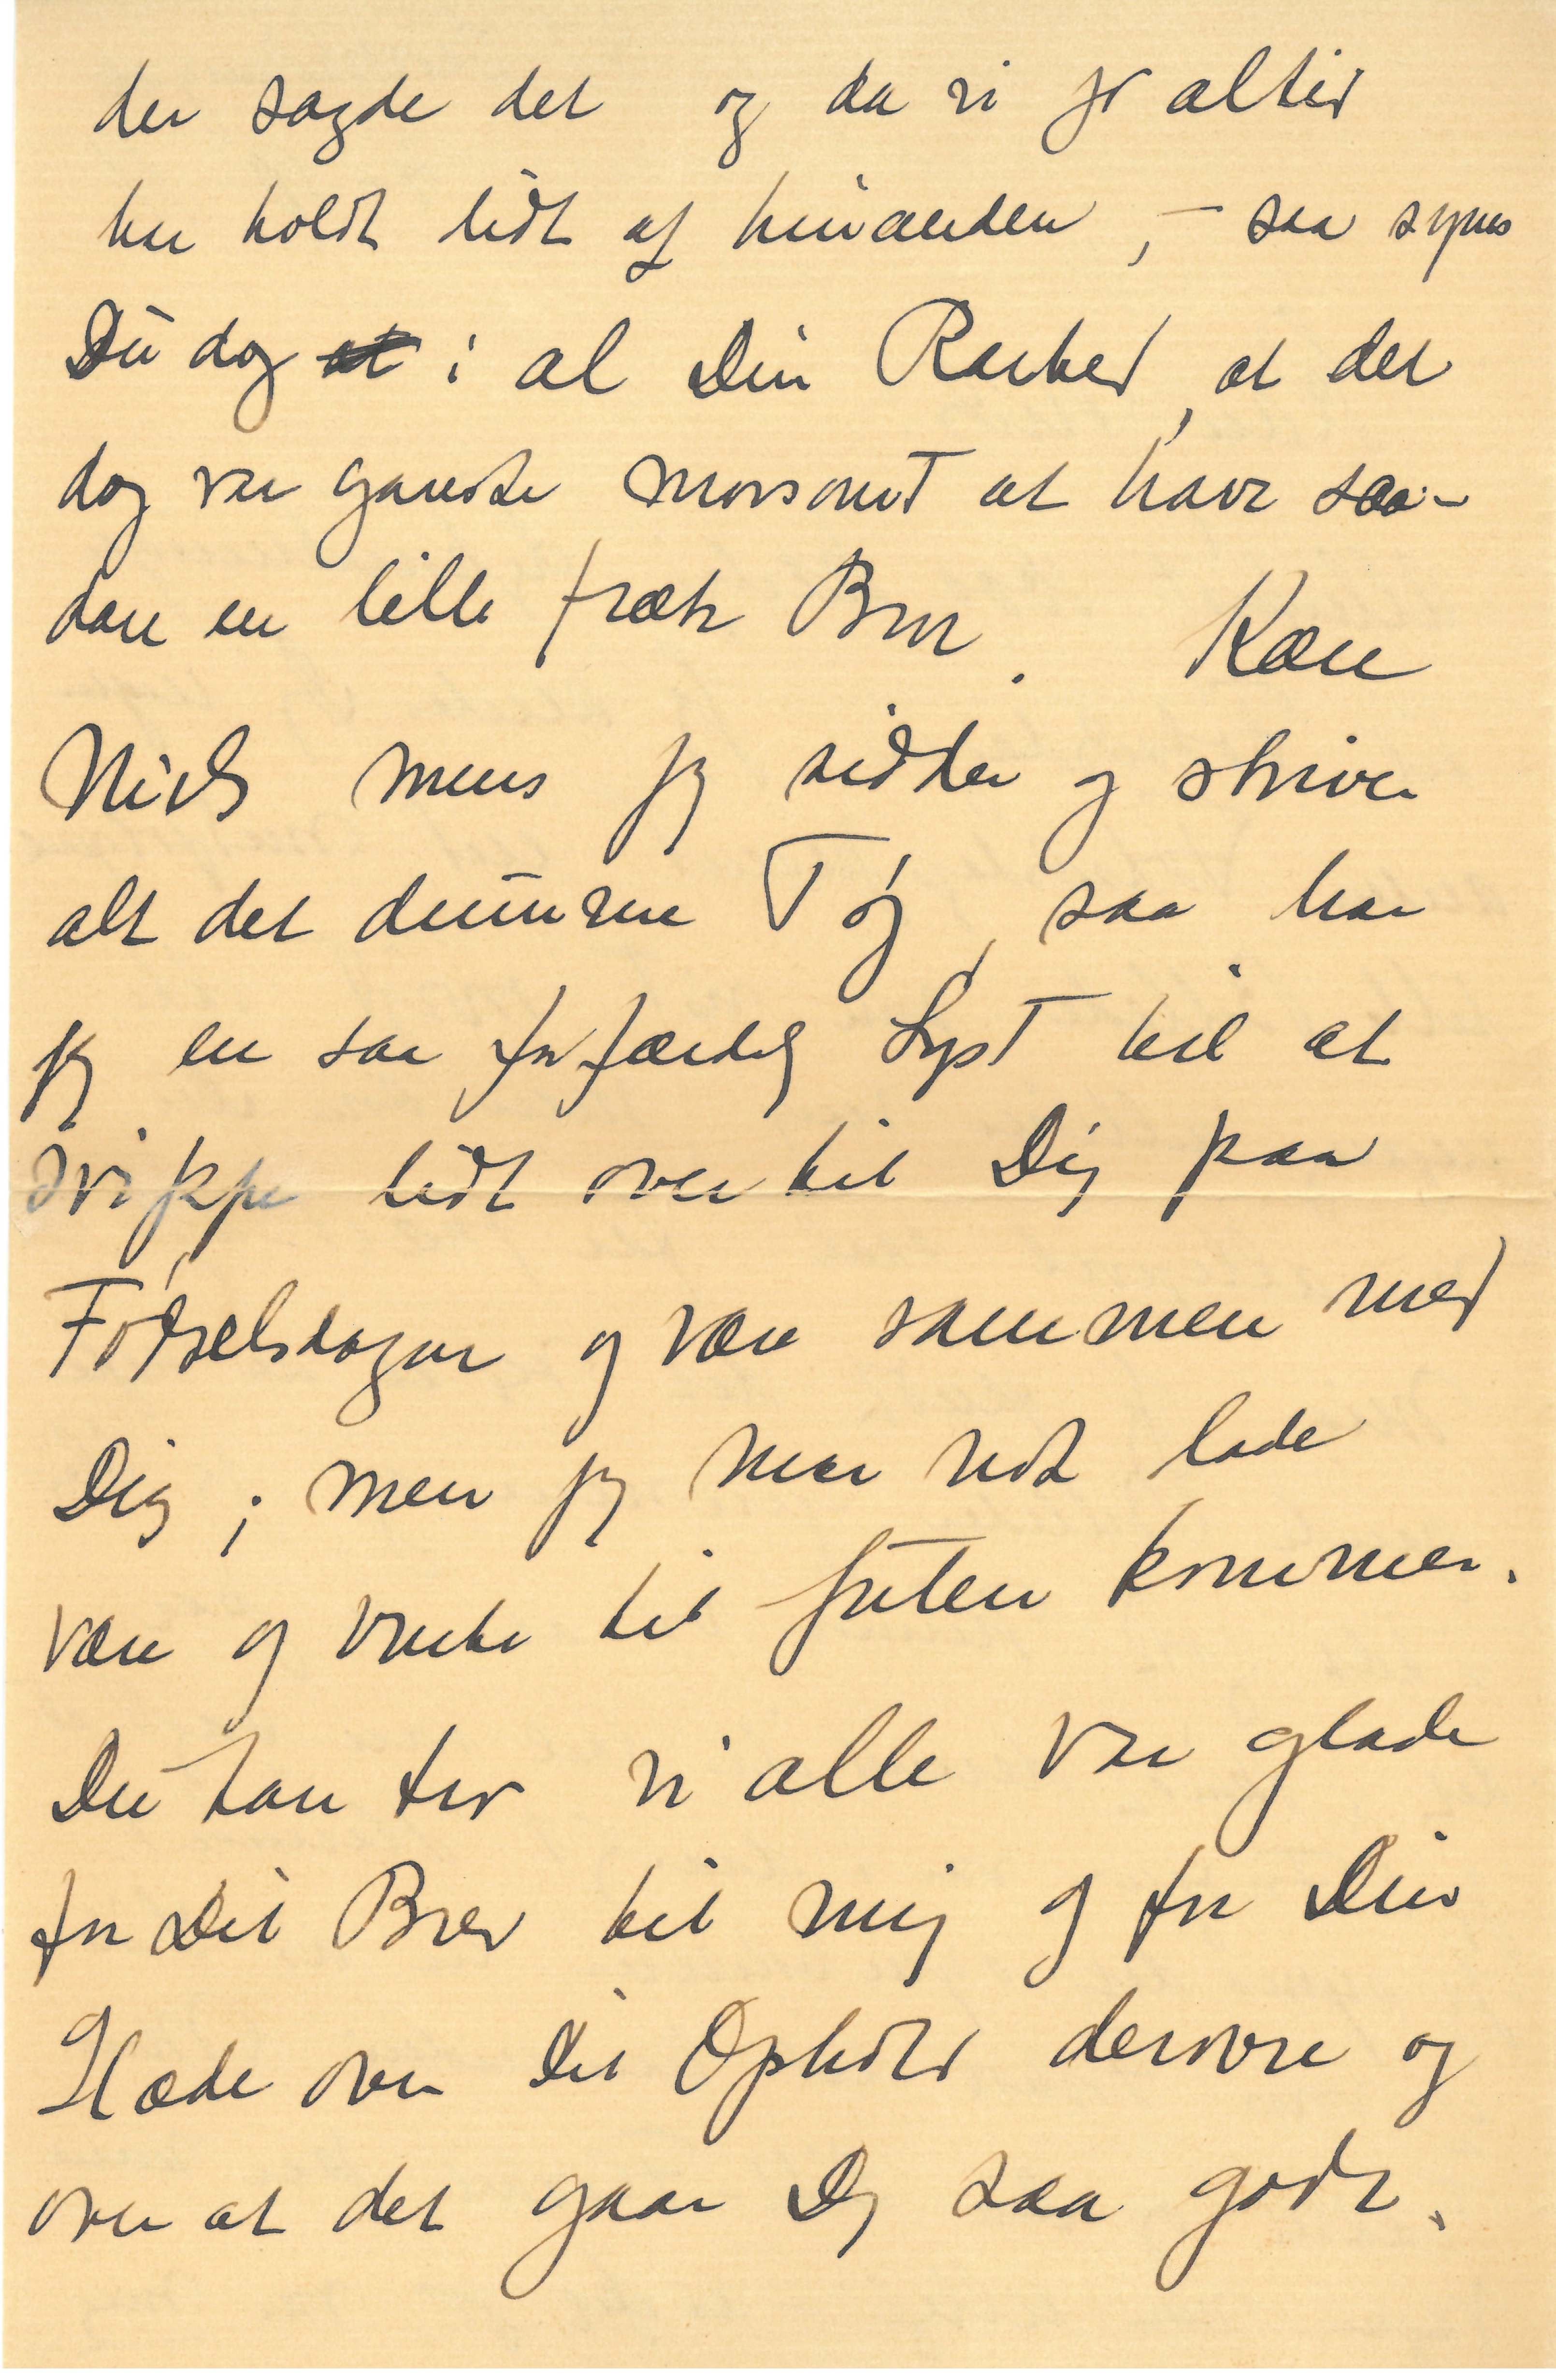 der sagde det og da vi jo altid
har holdt lidt af hinanden, – saa synes
Du dog at i al Din Rarhed, at det
dog var ganske morsomt at have saa-
dan en lille fræk Bror. Kære
Niels mens jeg sidder og skriver
alt det dumme Tøj, saa har
jeg en saa forfærdelig Lyst til at
svippe lidt over til Dig paa
Fødselsdagen og være sammen med
Dig; men jeg maa nok lade
være og vente til Julen kommer.
Du kan tro vi alle var glade
for Dit Brev til mig og for Din
Glæde over Dit Ophold derovre og
over at det gaar Dig saa godt.